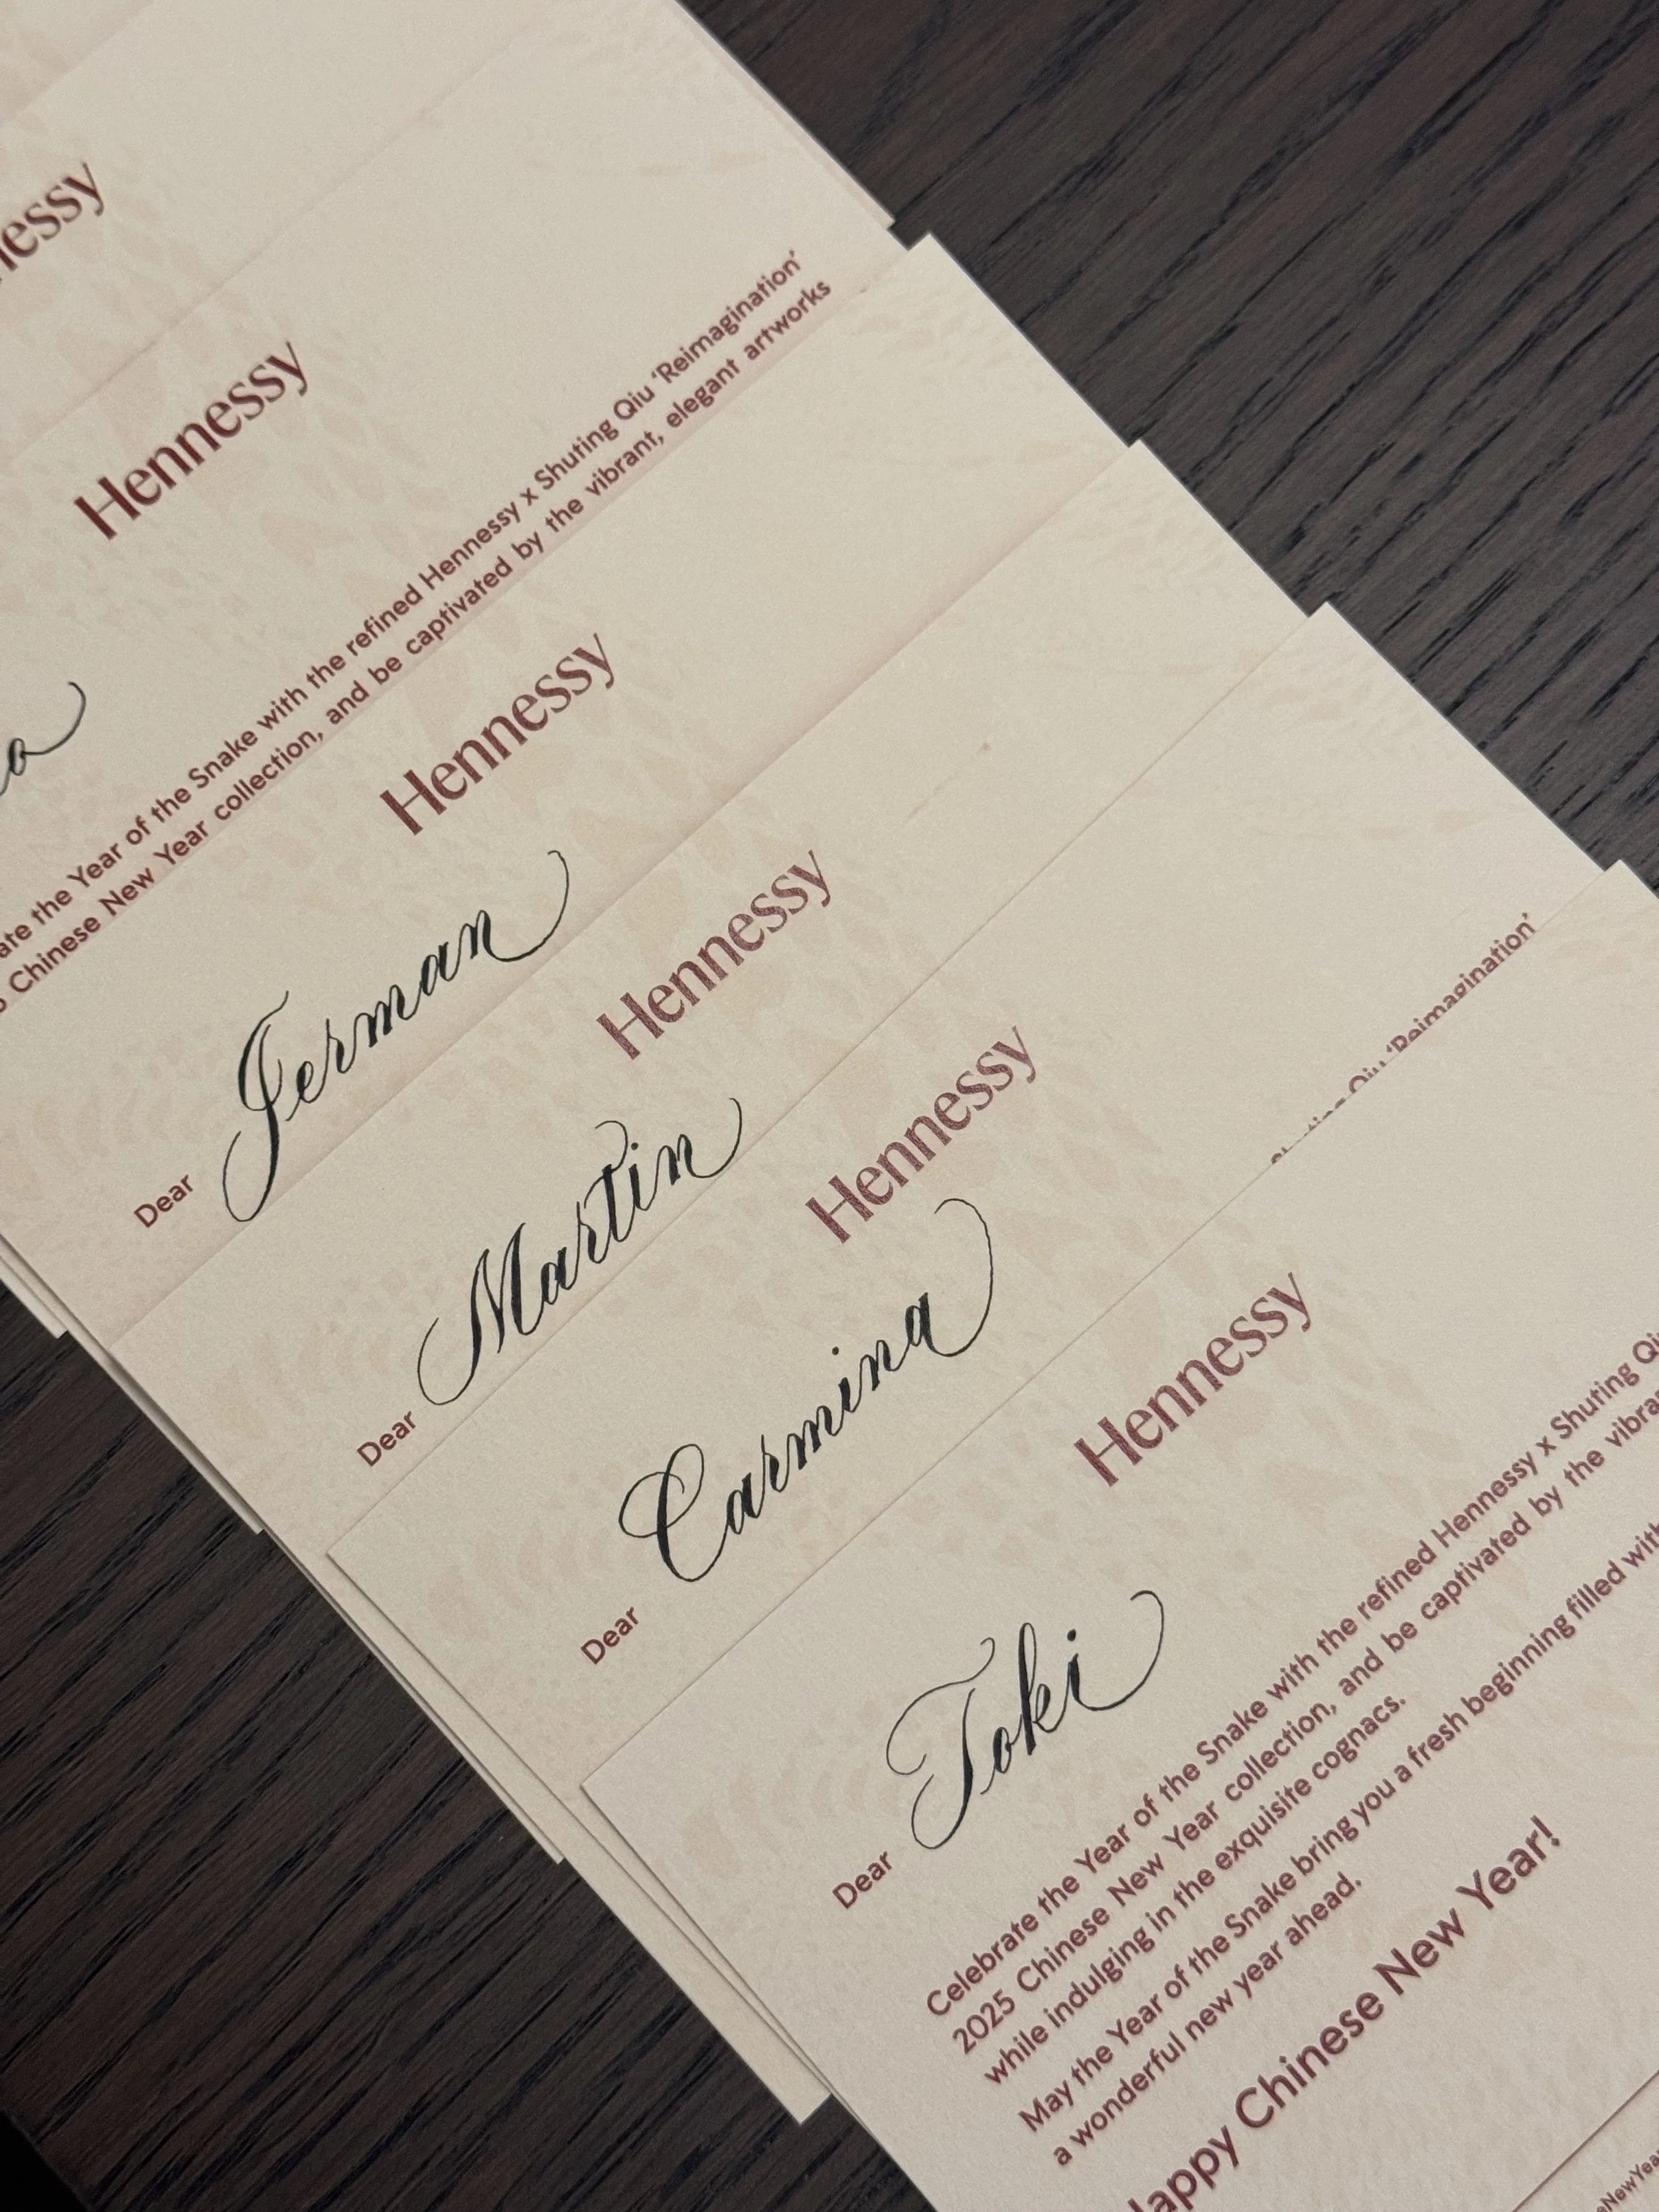 nessy
Hennessy
the Year of the Snake with the refined Hennessy x Shuting Qiu ‘Reimagination’
Chinese New Year collection, and be captivated by the vibrant, elegant artworks
Hennessy
Dear Jerman
Hennessy
Dear Martin
Hennessy
Dear Carmina
Qiu ‘Reimagination’
Hennessy
Dear Toki
Celebrate the Year of the Snake with the refined Hennessy x Shuting Qiu
2025 Chinese New Year collection, and be captivated by the
while indulging in the exquisite cognacs.
May the Year of the Snake bring you a fresh beginning filled with
a wonderful new year ahead.
Happy Chinese New Year!